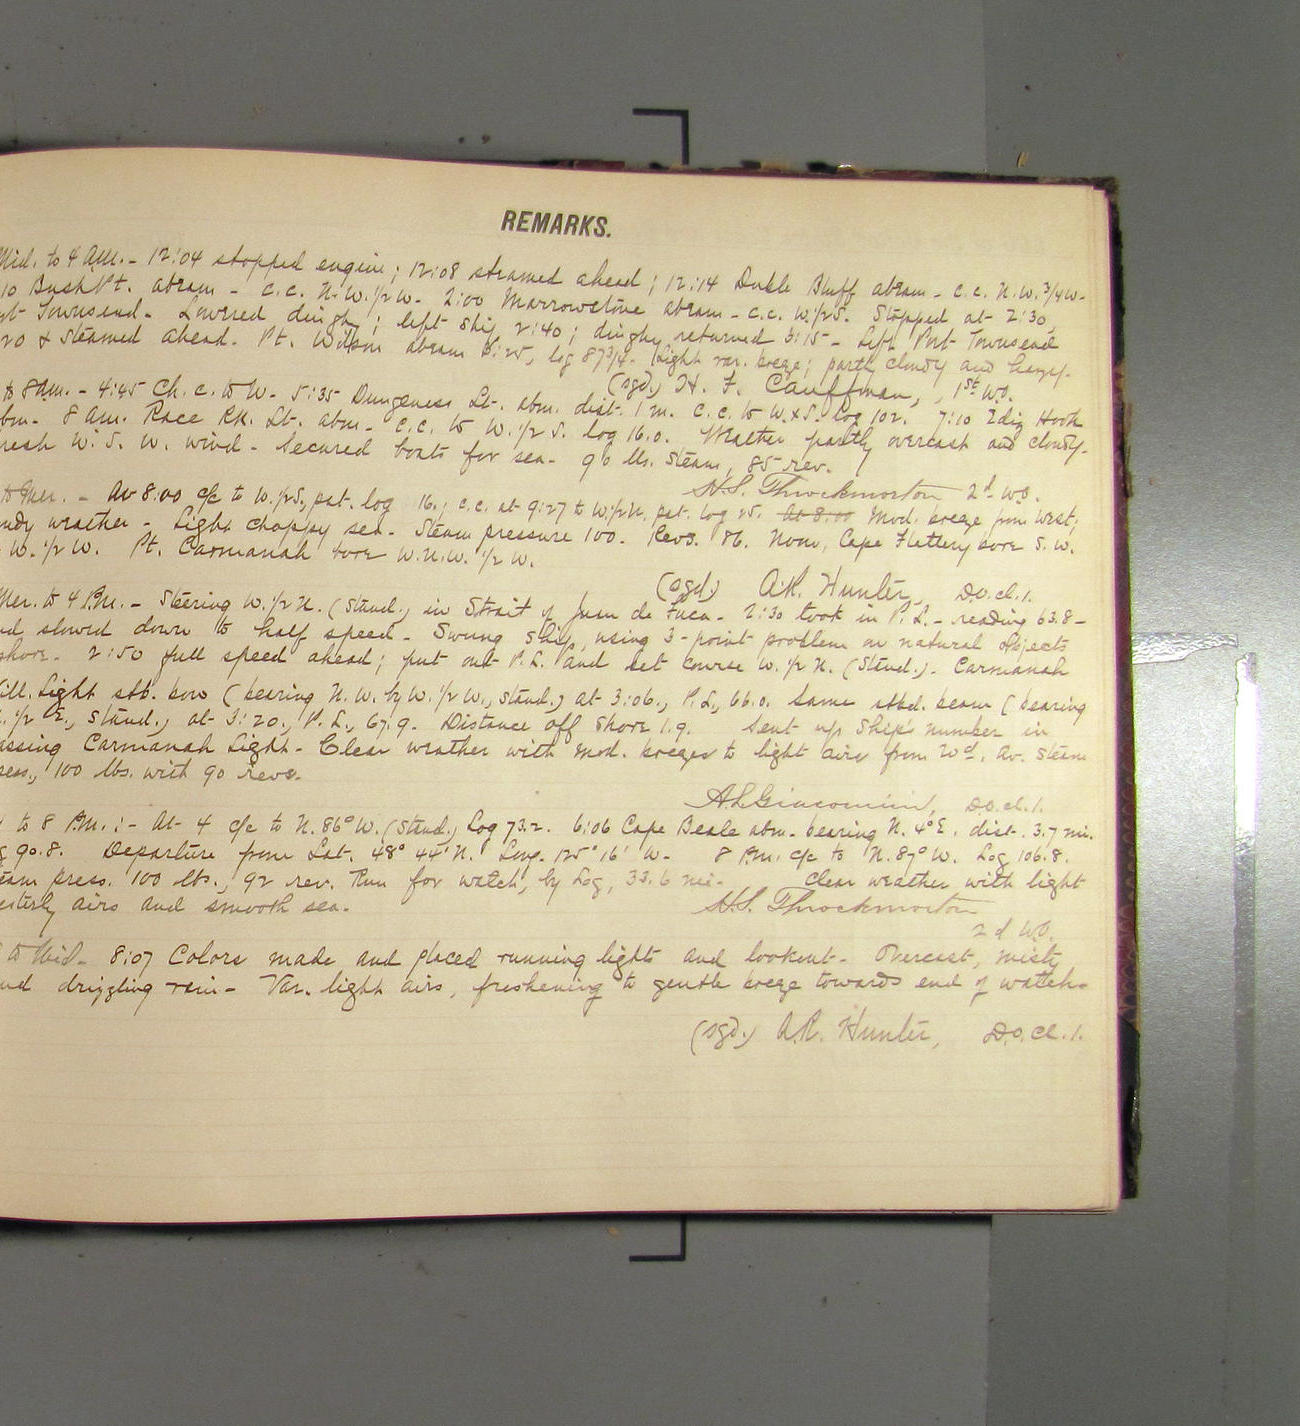 REMARKS.
Mid. to 4 A.M. - 12:04 stopped engine; 12:08 steamed ahead; 12:14 Duble Bluff abeam - c.c. N.W. 3/4 W -
10 Bush Pt. abeam - c.c. N.W. 1/2 W - 2:00 Marrowstone abeam - c.c. W. 1/2 S. Stopped at 2:30,
Townsend - Lowered dinghy; left ship 2:40; dinghy returned 3:15 - Left Port Townsend
20 & steamed ahead. Pt. Wilson abeam 3:25, log 87 3/4 - Light var. breeze; partly cloudy and hazy.
(sgd.) H. F. Cauffman, 1st W.O.
to 8 A.M. - 4:45 Ch. c. to W - 5:35 Dungeness Lt. abm. dist. 1 m. c.c. to W x S. log 102. 7:10 Ediz Hook
abm. 8 A.M. Race Rk. Lt. abm - c.c. to W. 1/2 S. log 16.0. Weather partly overcast and cloudy.
Fresh W. S. W. wind - Secured boats for sea - 90 lbs. steam, 85 rev.
H.S. Throckmorton 2d W.O.
to Mer. - At 8:00 c/c to W. 1/2 S, pat. log 16.; c.c. at 9:27 to W. 1/2 N. pat. log 25. At 8:00 Mod. breeze from West,
weather - Light choppy sea - Steam pressure 100. Revs. 86. Noon, Cape Flattery bore S. W.
W. 1/2 W. Pt. Carmanah bore W.N.W. 1/2 W.
(sgd) A.R. Hunter, D.O. cl. 1.
Mer. to 4 P.M. - Steering W. 1/2 N. (Stand.) in Strait of Juan de Fuca - 2:30 took in P. L. - reading 63.8 -
and slowed down to half speed - Swung ship, using 3-point problem on natural objects
shore - 2:50 full speed ahead; put out P. L. and set course W. 1/2 N. (Stand.). Carmanah
Light stb. bow (bearing N. W. by W. 1/2 W., stand.) at 3:06., P. L., 66.0. Same stbd. beam (bearing
1/2 E., stand.) at 3:20., P. L., 67.9. Distance off shore 1.9. Sent up Ship's number in
passing Carmanah Light - Clear weather with mod. breezes to light airs from Wd. Av. Steam
press., 100 lbs. with 90 revs.
A.L. Giacomini, D.O. cl. 1.
to 8 P.M.:- At 4 c/c to N. 86° W. (Stand.) Log 73.2. 6:06 Cape Beale abm - bearing N. 4° E. dist. 3.7 mi.
90.8. Departure from Lat. 48° 44' N. Long. 125° 16' W - 8 P.M. c/c to N. 87° W. Log 106.8.
Steam press. 100 lbs., 92 rev. Run for watch, by Log, 33.6 mi. - Clear weather with light
airs and smooth sea.
H.S. Throckmorton
2d W.O.
to Mid - 8:07 Colors made and placed running lights and lookout - Overcast, misty
and drizzling rain - Var. light airs, freshening to gentle breeze towards end of watch.
(sgd.) A.R. Hunter, D.O. cl. 1.